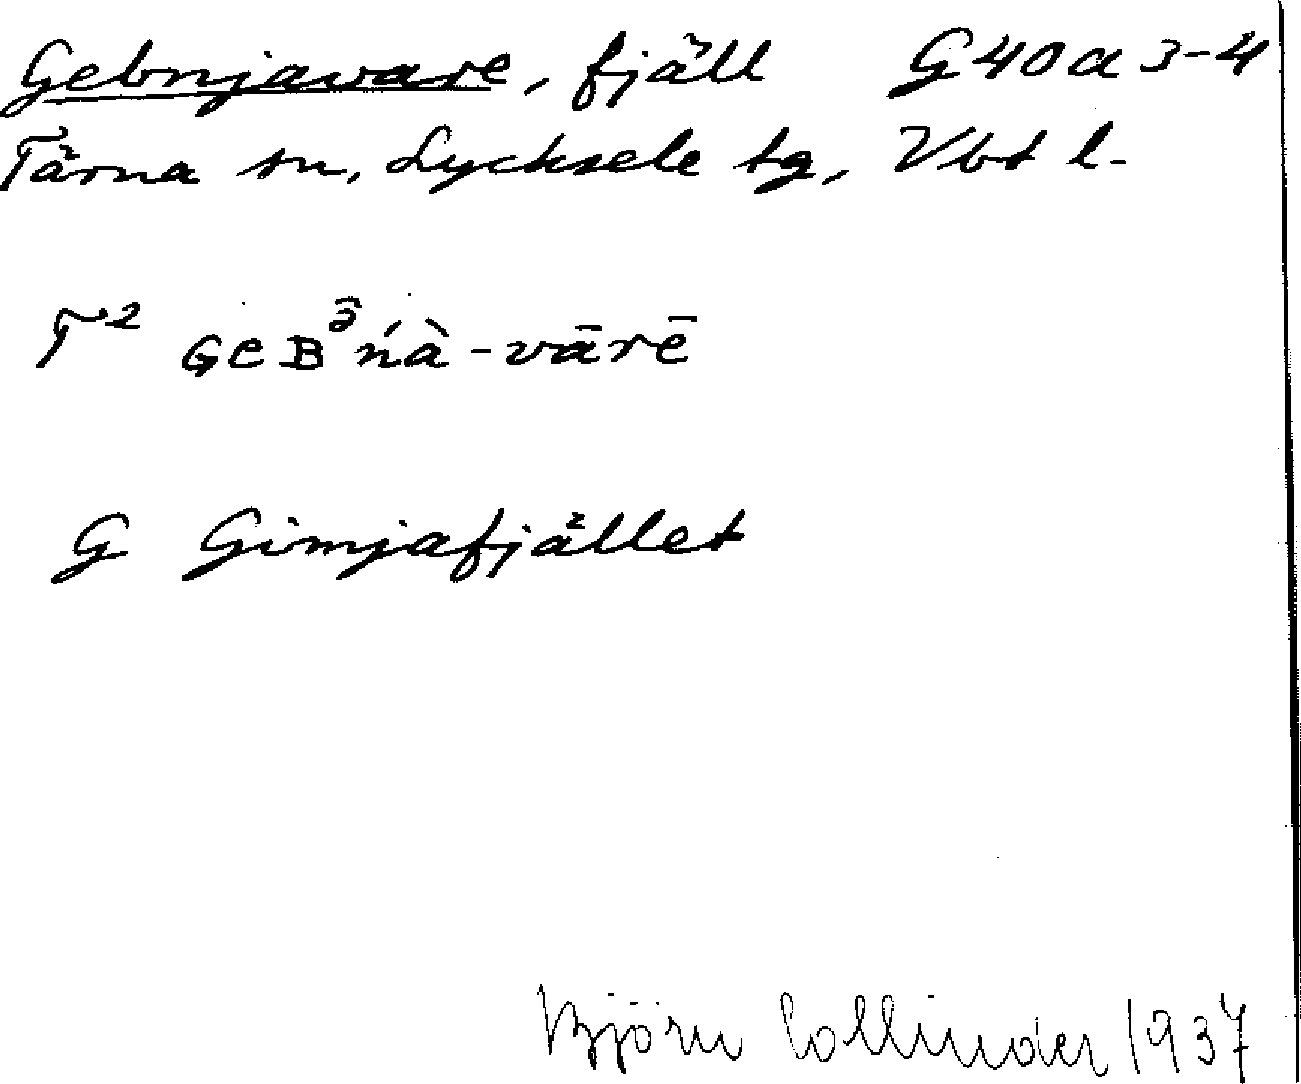 Gebnjavare, fjäll G40a3-4
Tärna sn, Lycksele tg, Vbt l.
T² GEBᵊ̂ńà-vārē
G Gimjafjället
Björn Collinder 1937